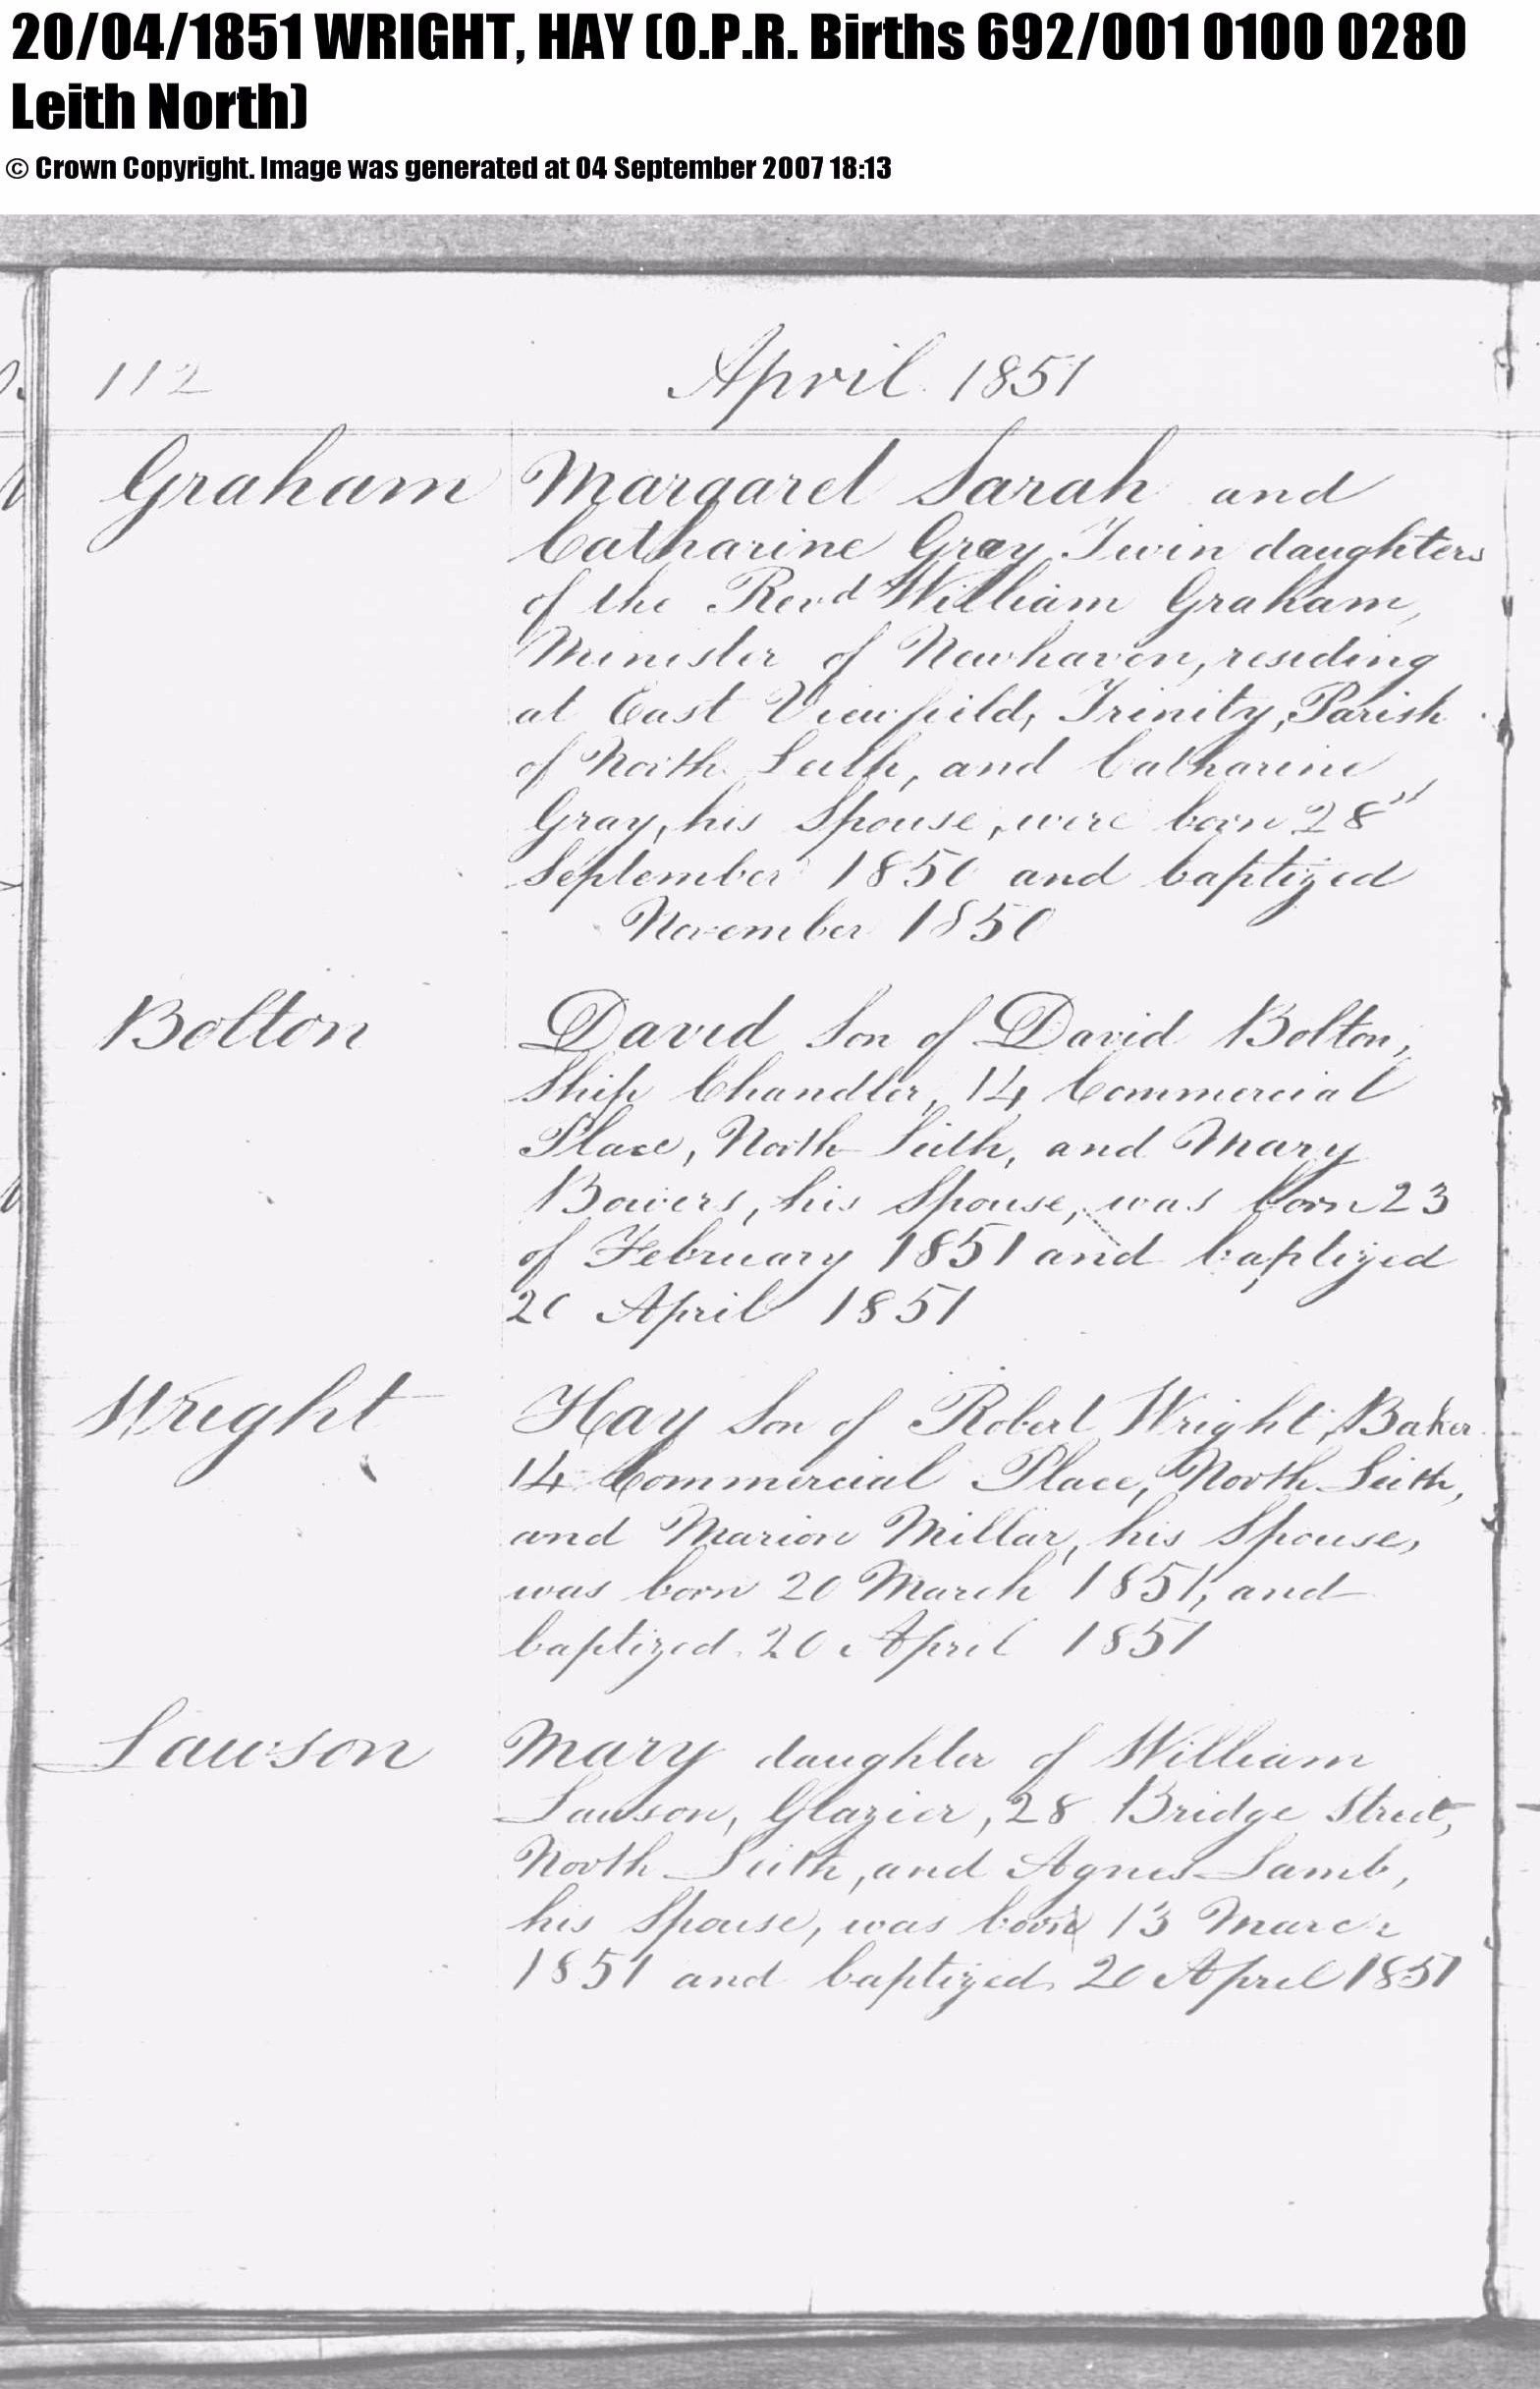 20/04/1851 WRIGHT, HAY (O.P.R. Births 692/001 0100 0280
Leith North)
© Crown Copyright. Image was generated at 04 September 2007 18:13
112 April 1851
Graham Margaret Sarah and
Catharine Gray Twin daughters
of the Revd William Graham,
Minister of Newhaven, residing
at East Viewfield, Trinity, Parish
of North Leith, and Catharine
Gray, his Spouse, were born 28"
September 1850 and baptized
November 1850
Bolton David Son of David Bolton,
Ship Chandler, 14 Commercial
Place, North Leith, and Mary
Bowers, his Spouse, was born 23
of February 1851 and baptized
20 April 1851
Wright Hay Son of Robert Wright, Baker
14 Commercial Place, North Leith,
and Marion Millar, his Spouse,
was born 20 March 1851, and
baptized 20 April 1851
Lawson Mary daughter of William
Lawson, Glazier, 28 Bridge Street,
North Leith, and Agnes Lamb,
his Spouse, was born 13 March
1851 and baptized 20 April 1851